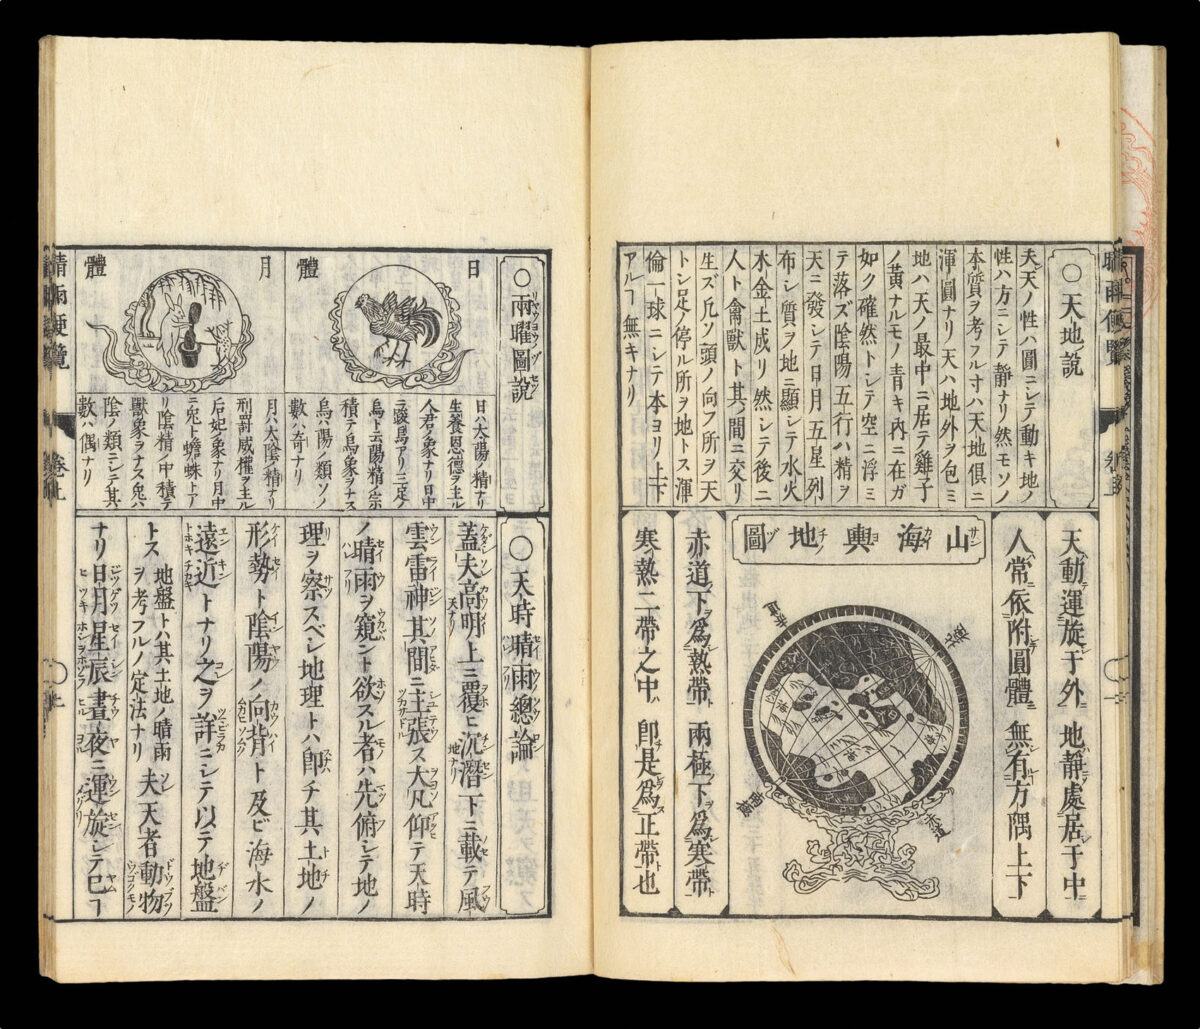 ○天地ノ説
夫天ノ性ハ圓ニシテ動キ地ノ
性ハ方ニシテ靜ナリ然モソノ
本質ヲ考フル寸ハ天地倶ニ
渾圓ナリ天ハ地外ヲ包ミ
地ハ天ノ最中ニ居テ雞子
ノ黄ナルモノ青キ内ニ在ガ
如ク確然トシテ空ニ浮ミ
テ落ズ陰陽五行ハ精ヲ
天ニ發シテ日月五星列
布シ質ヲ地ニ顯シテ水火
木金土成リ然シテ後ニ
人ト禽獸ト其ノ間ニ交リ
生ズ凡ソ頭ノ向フ所ヲ天
トシ足ノ停ル所ヲ地トス渾
倫一球ニシテ本ヨリ上下
アルヿ無キナリ
天動運旋于外 地靜處居于中
人常依附圓體 無有方隅上下
山海輿地圖
赤道
赤道下爲熱帶 兩極下爲寒帶
寒熱二帶之中 卽是爲正帶也
○兩曜圖説
日體
月體
日ハ太陽ノ精ナリ
生養恩德ヲ主ル
人君ノ象ナリ日中
ニ駿鳥アリ三足ノ
烏ト云陽精ノ宗
積テ烏象ヲナス
烏ハ陽ノ類ソノ
數ハ奇ナリ
月ハ太陰ノ精ナリ
刑罸威權ヲ主ル
后妃ノ象ナリ月中
ニ兎ト蟾蜍トア
リ陰精ノ中積テ
獸象ヲナス兎ハ
陰ノ類ニシテ其
數ハ偶ナリ
○天時晴雨總論
蓋夫高明上ニ覆ヒ沉潛下ニ載テ風
雲雷神其間ニ主張ス大凡仰テ天時
ノ晴雨ヲ窺ント欲スル者ハ先俯シテ地ノ
理ヲ察スベシ地理トハ卽チ其土地ノ
形勢ト陰陽ノ向背ト及ビ海水ノ
遠近トナリ之ヲ詳ニシテ以テ地盤
トス 地盤トハ其土地ノ晴雨ヲ考フルノ定法ナリ 夫天者動物
ナリ日月星辰晝夜ニ運旋シテ已ヿ
晴雨便覽